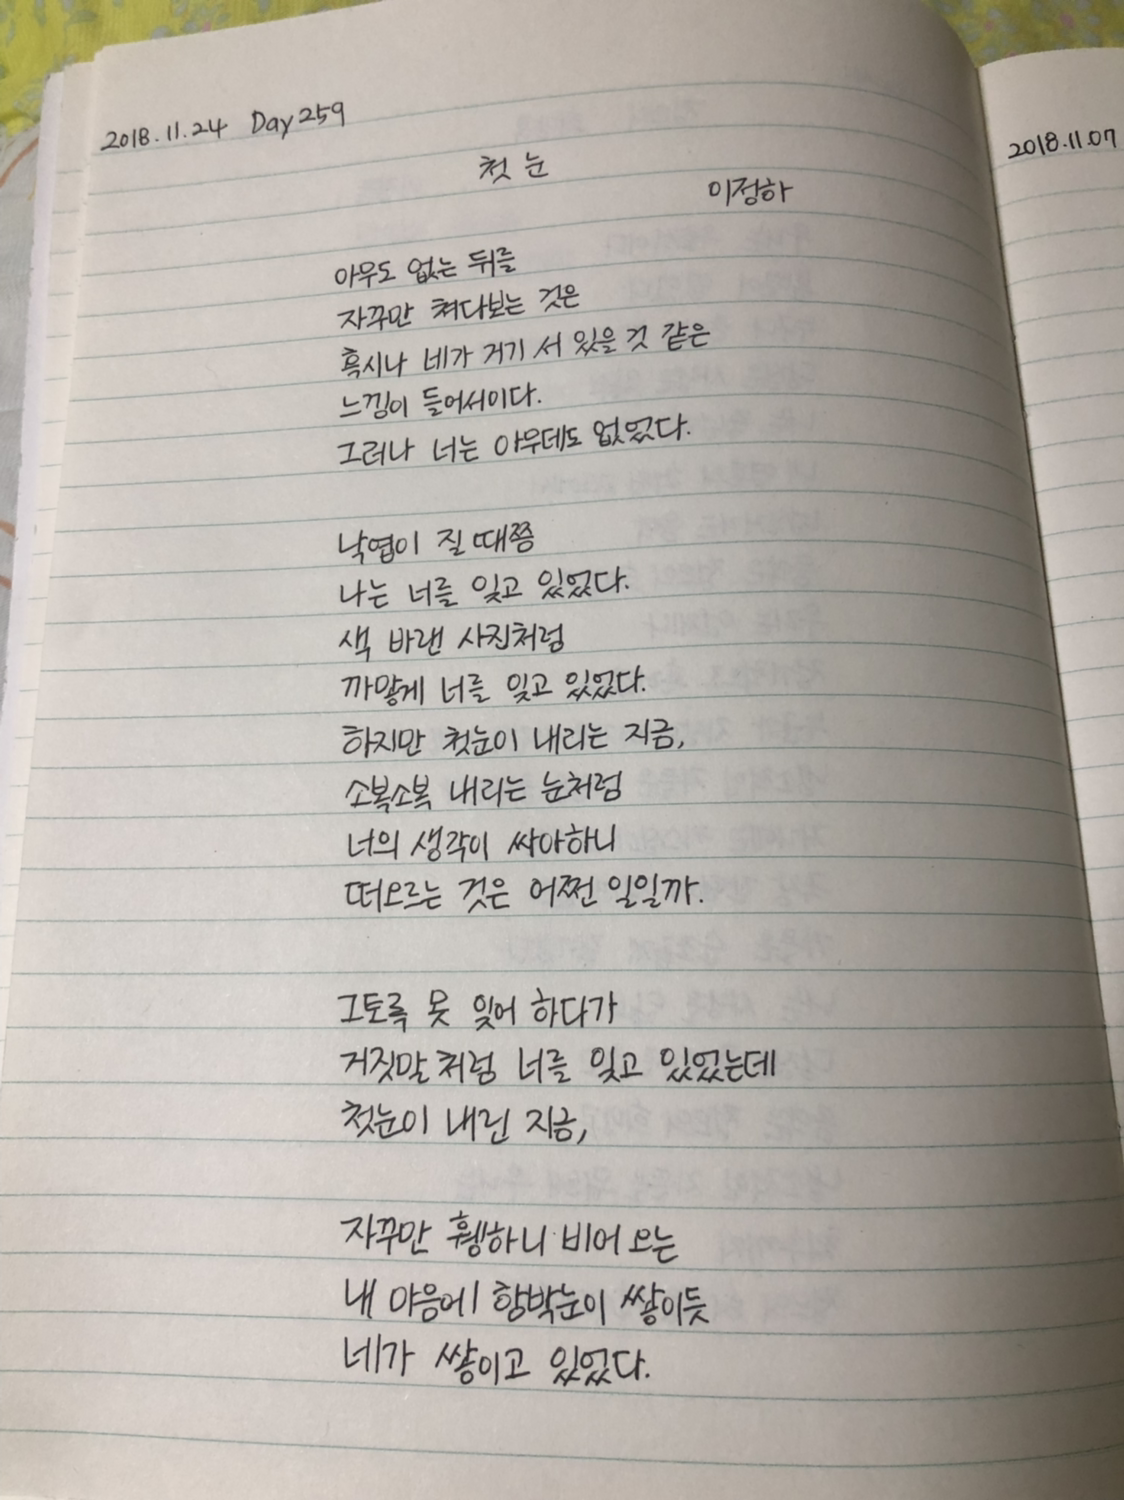 2018.11.24 Day 259
첫 눈
이정하
아무도 없는 뒤를
자꾸만 쳐다보는 것은
혹시나 네가 거기 서 있을 것 같은
느낌이 들어서이다.
그러나 너는 아무데도 없었다.
낙엽이 질 때쯤
나는 너를 잊고 있었다.
색 바랜 사진처럼
까맣게 너를 잊고 있었다.
하지만 첫눈이 내리는 지금,
소복소복 내리는 눈처럼
너의 생각이 싸아하니
떠오르는 것은 어쩐 일일까.
그토록 못 잊어 하다가
거짓말처럼 너를 잊고 있었는데
첫눈이 내린 지금,
자꾸만 휑하니 비어 오는
내 마음에 함박눈이 쌓이듯
네가 쌓이고 있었다.
2018.11.07